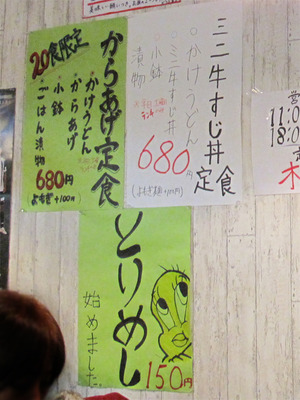 20食限定
からあげ定食
かけうどん
からあげ
小鉢
ごはん漬物
680円
ミニ牛すじ丼定食
○かけうどん
○ミニ牛すじ丼
小鉢
漬物
680円
営
11:0
18:0
木
とりめし
始めました。
150円